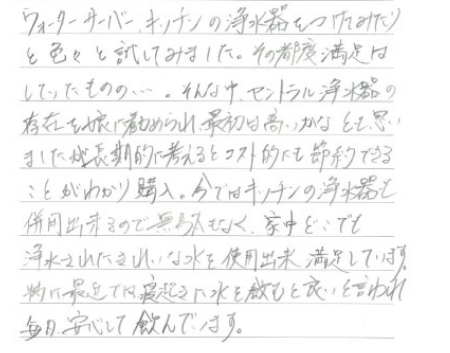 ウォーターサーバー、キッチンの浄水器をつけてみたり
と色々と試してみました。その都度満足は
していたものの…。そんな中、セントラル浄水器の
存在を娘に勧められ、最初は高いかな とも思い
ましたが長期的に考えるとコスト的にも節約できる
ことがわかり購入。今ではキッチンの浄水器も
併用出来るので無駄もなく、家中どこでも
浄水されたきれいな水を使用出来、満足しています。
特に最近では、寝起きに水を飲むと良いと言われ
毎日、安心して飲んでいます。